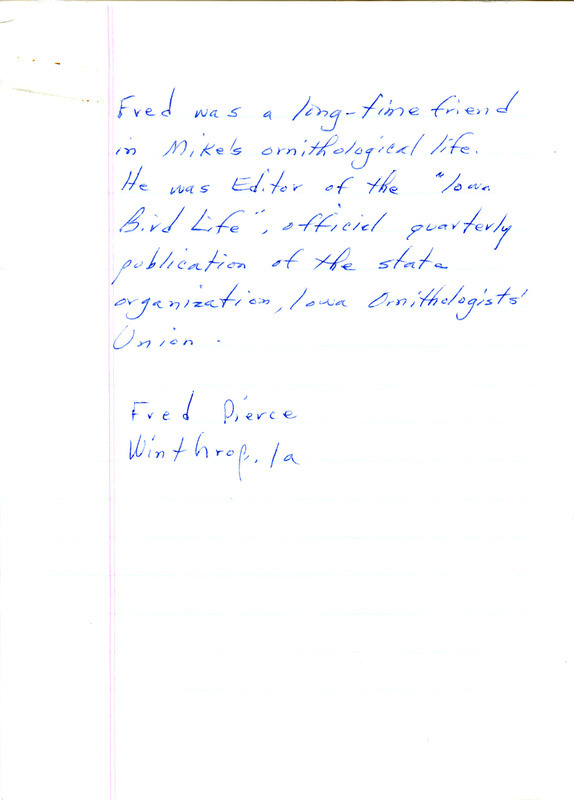 Fred was a long-time friend
in Mike's ornithological life.
He was Editor of the "Iowa
Bird Life", official quarterly
publication of the state
organization, Iowa Ornithologists'
Union.
Fred Pierce
Winthrop, Ia